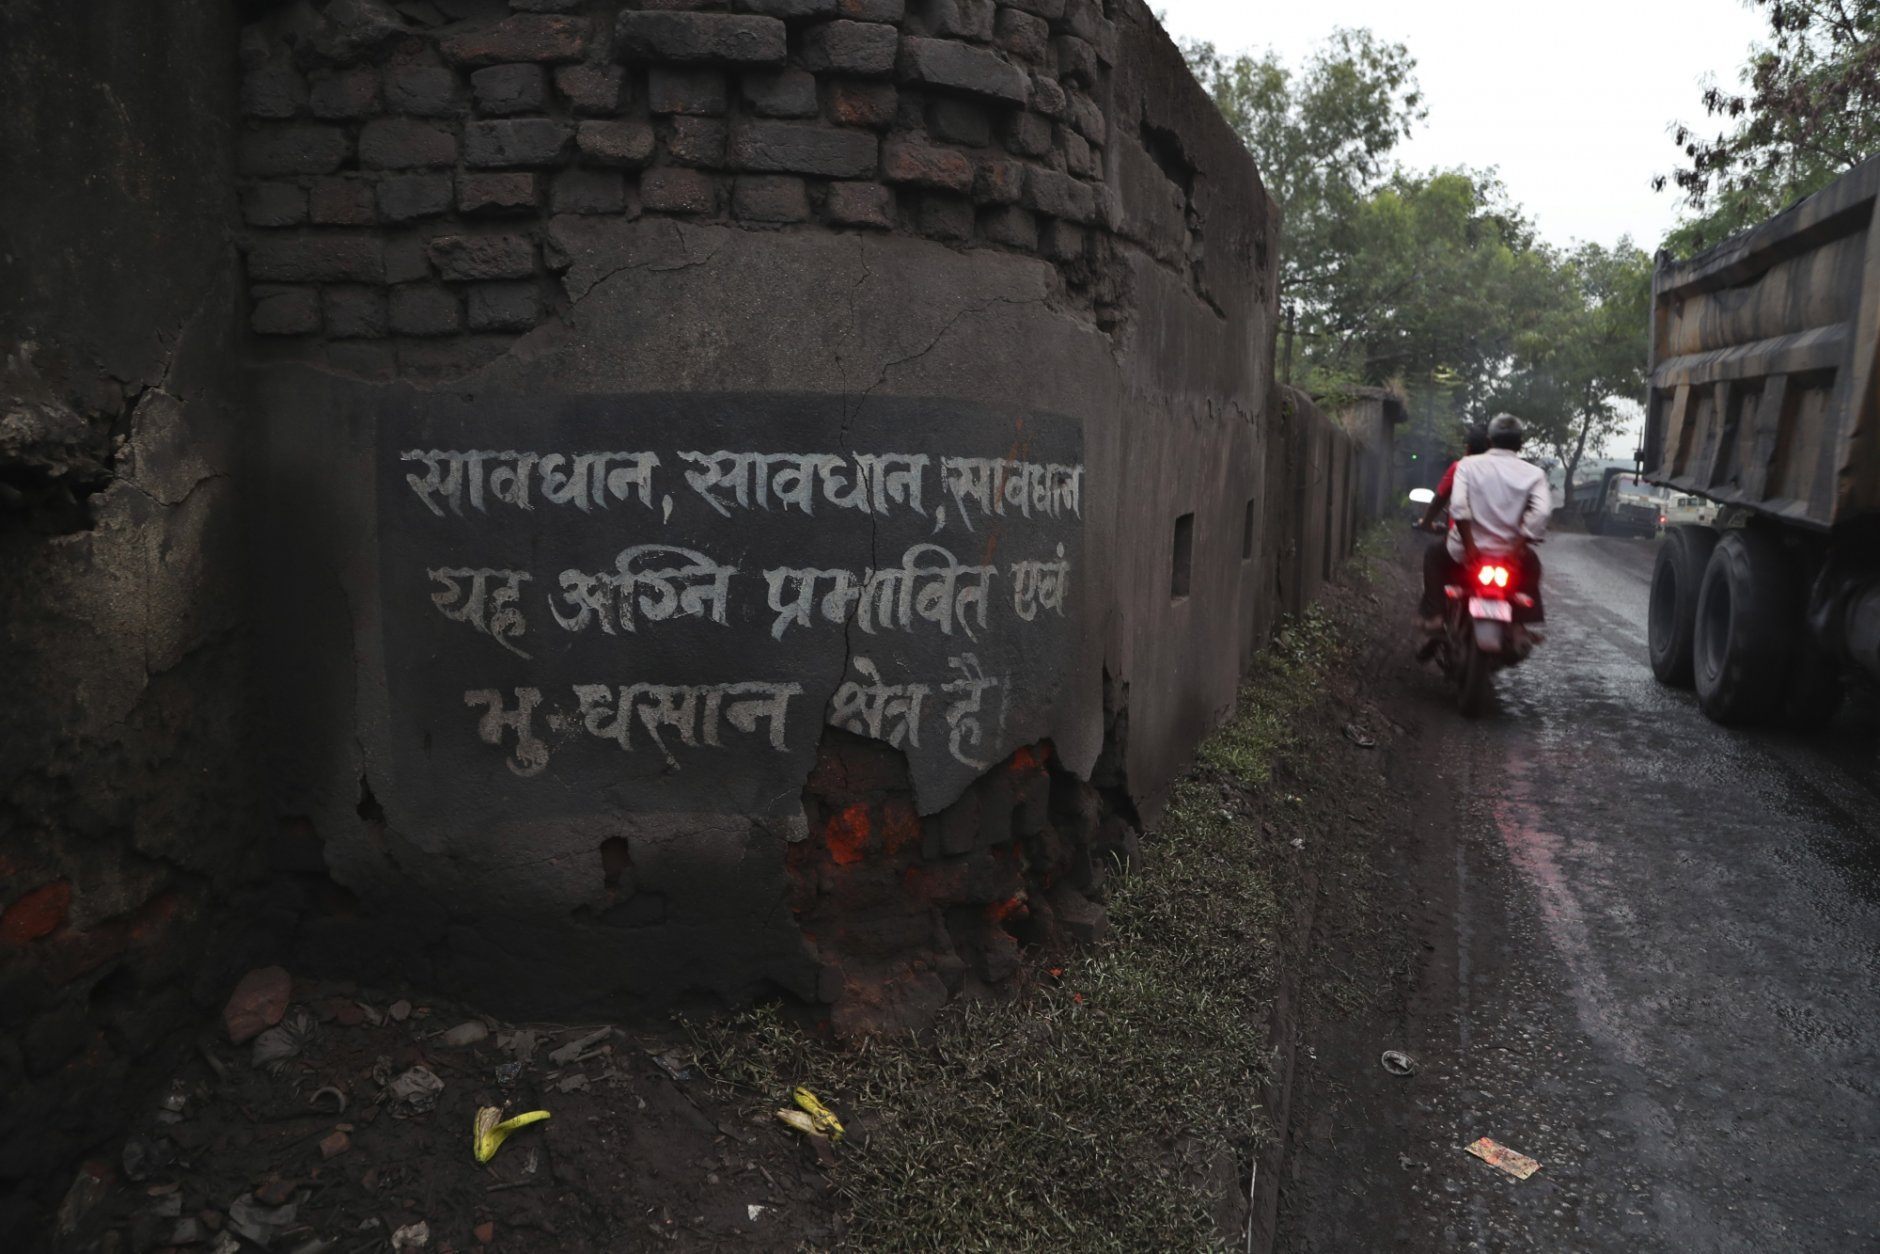 सावधान, सावधान, सावधान
यह अग्नि प्रभावित एवं
भु-धसान क्षेत्र है।